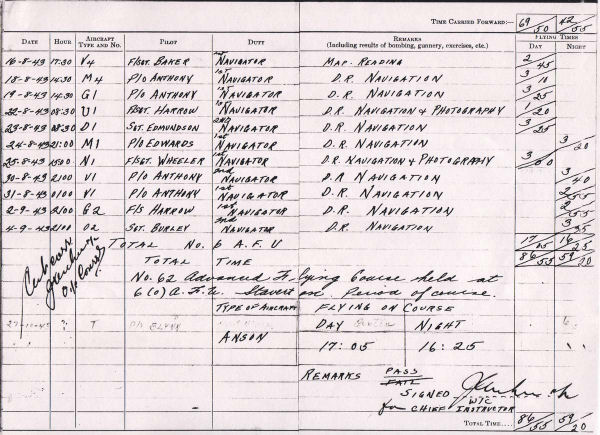 TIME CARRIED FORWARD:— 69/50 42/55
DATE HOUR AIRCRAFT TYPE AND NO. PILOT DUTY REMARKS (Including results of bombing, gunnery, exercises, etc.) FLYING TIMES DAY NIGHT
16-8-43 17:30 V4 F/SGT. BAKER 1st NAVIGATOR MAP-READING 2/45
18-8-43 14:30 M4 P/O ANTHONY 1st NAVIGATOR D.R. NAVIGATION 3/10
19-8-43 14:30 G1 P/O ANTHONY 1st NAVIGATOR D.R. NAVIGATION 3/25
22-8-43 08:30 U1 F/SGT. HARROW 1st NAVIGATOR D.R. NAVIGATION & PHOTOGRAPHY 1/20
23-8-43 08:30 D1 SGT. EDMUNDSON 2nd NAVIGATOR D.R. NAVIGATION 3/25
24-8-43 21:00 M1 P/O EDWARDS 1st NAVIGATOR D.R. NAVIGATION 3/20
25-8-43 N1 F/SGT. WHEELER 1st NAVIGATOR D.R. NAVIGATION & PHOTOGRAPHY 3/00
30-8-43 2100 V1 P/O ANTHONY 2nd NAVIGATOR D.R NAVIGATION 3/40
31-8-43 0100 V1 P/O ANTHONY 1st NAVIGATOR D.R. NAVIGATION 2/55
2-9-43 2100 G2 F/S HARROW 1st NAVIGATOR D.R. NAVIGATION 2/55
4-9-43 2100 O2 SGT. BURLEY 2nd NAVIGATOR D.R. NAVIGATION 3/35
TOTAL No. 6 A.F.U 17/05 16/25
TOTAL TIME 86/55 59/20
O/c Course
No. 62 Advanced Flying Course held at
6(O)A.F.U. Staverton Period of course.
TYPE OF AIRCRAFT FLYING ON COURSE
DAY NIGHT
ANSON 17:05 16:25
REMARKS PASS
FAIL
SIGNED
W/C
for CHIEF INSTRUCTOR
TOTAL TIME.... 86/55 59/20